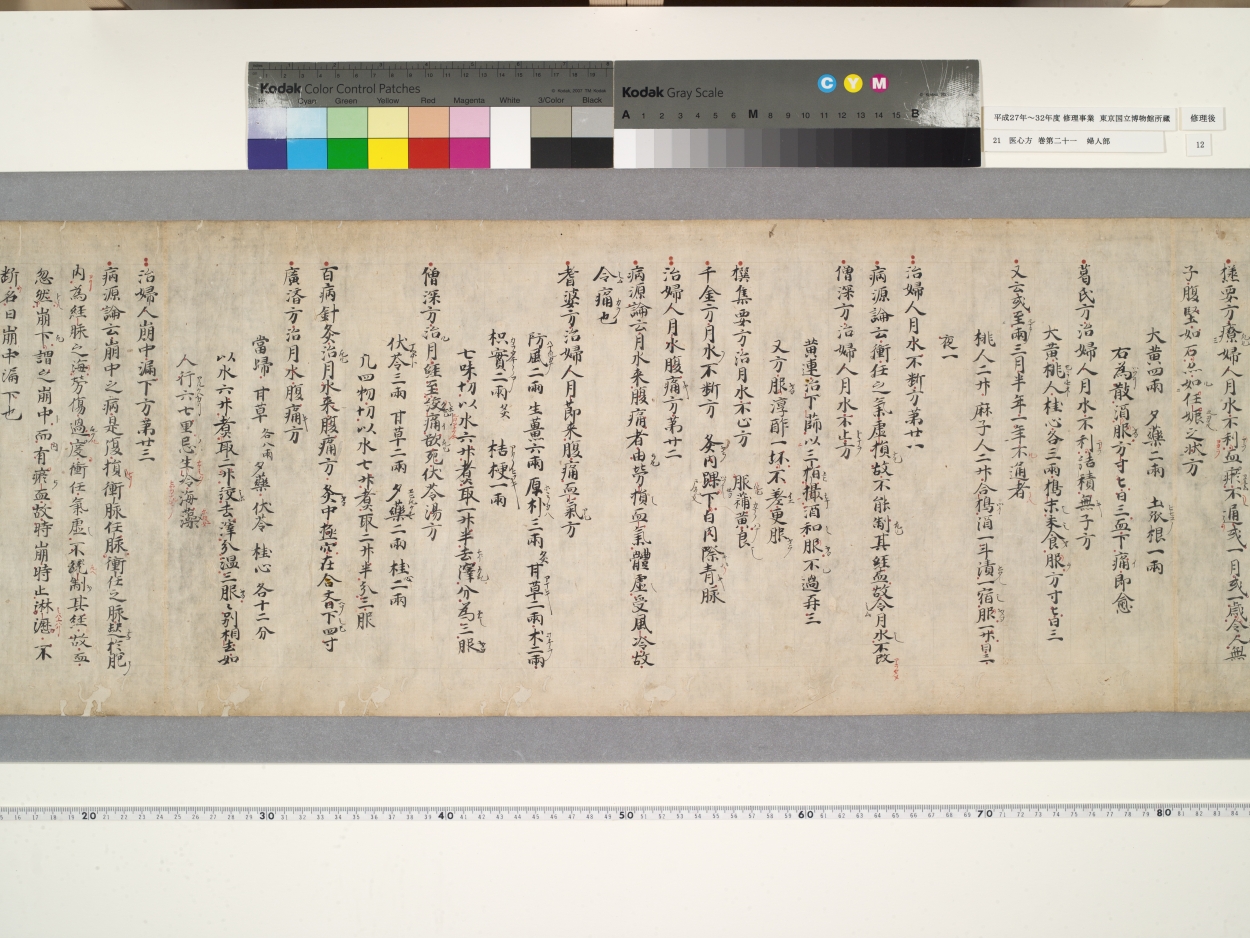 Kodak Color Control Patches
Blue Cyan Green Yellow Red Magenta White 3/Color Black
Kodak Gray Scale
C Y M
A 1 2 3 4 5 6 M 8 9 10 11 12 13 14 15 B
平成27年～32年度 修理事業 東京国立博物館所蔵
修理後
21 医心方 巻第二十一 婦人部
12
子腹堅如石亦如任娠之状方
大黄四兩 夕藥二兩 土瓜根一兩
右為散酒服方寸匕日三血下痛即愈
葛氏方治婦人月水不利結積無子方
大黄桃人桂心各三兩擣末未食服方寸匕日三
又云或至兩三月半年一年不通者
桃人二升麻子人二升合擣酒一斗漬一宿服一升日三
夜一
治婦人月水不断方第廿一
病源論云衝任之氣虚損故不能制其経血故令月水不改
僧深方治婦人月水不止方
黄連治下篩以三指撮酒和服不過再三
又方服淳酢一坏不差更服
撰集要方治月水不止方 服蒲黄良
千金方月水不断方 灸内踝下白肉際青脉
治婦人月水腹痛方第廿二
病源論云月水来腹痛者由労損血氣體虚受風冷故
令痛也
耆婆方治婦人月節来腹痛血氣方
防風二兩 生薑六兩 厚朴三兩炙 甘草二兩 朮二兩
枳實二兩炙 桔梗一兩
七味切以水六升煮取一升半去滓分為三服
僧深方治月経至絞痛欲死伏苓湯方
伏苓三兩 甘草二兩 夕藥二兩 桂二兩
凡四物切以水七升煮取二升半分三服
百病針灸治月水来腹痛方 灸中極穴在
廣済方治月水腹痛方
當歸 甘草 各八兩 夕藥 伏苓 桂心 各十二分
以水六升煮取二升絞去滓分温三服〻別相去如
人行六七里忌生冷海藻
治婦人崩中漏下方第廿三
病源論云崩中之病是傷損衝脉任脉衝任之脉起於胞
内為経脉之海労傷過度衝任氣虚不統制其経故血
忽然崩下謂之崩中而有瘀血故時崩時止淋瀝不
断名曰崩中漏下也
20 30 40 50 60 70 80